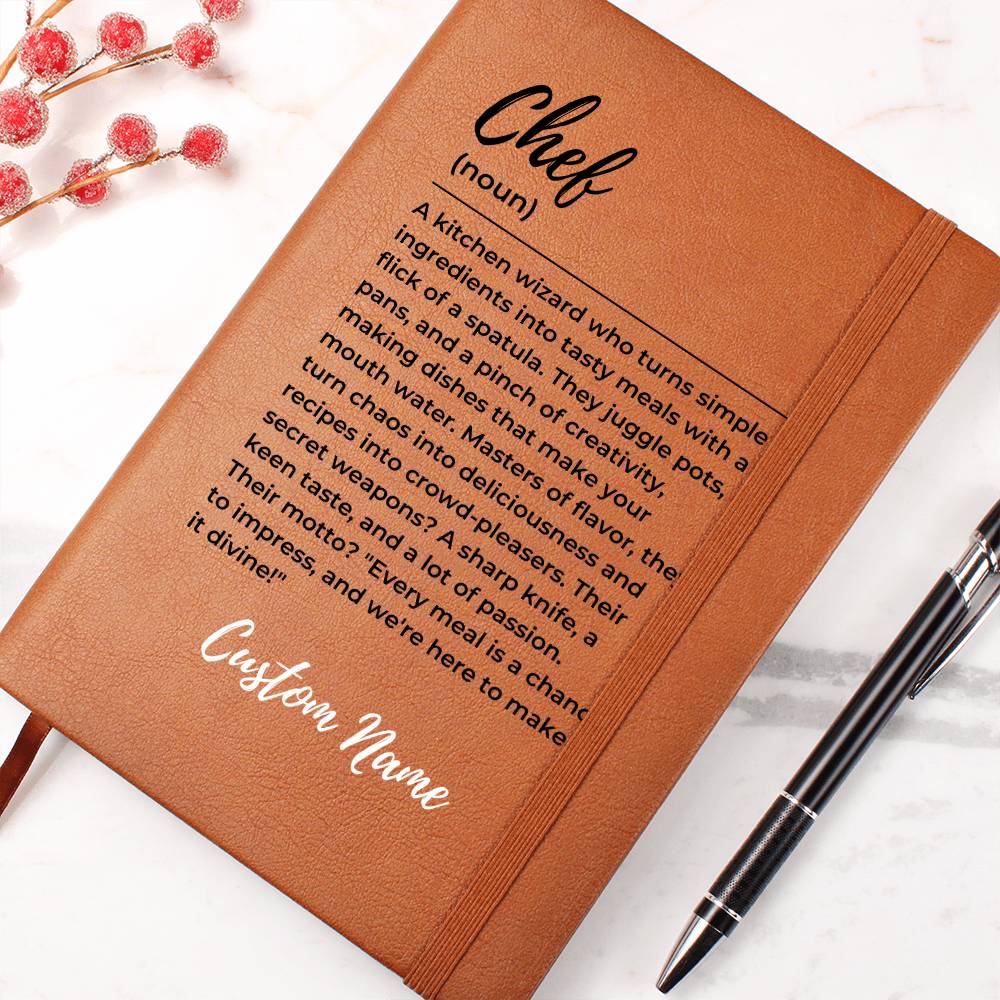 Chef
(noun)
A kitchen wizard who turns simple
ingredients into tasty meals with a
flick of a spatula. They juggle pots,
pans, and a pinch of creativity,
making dishes that make your
mouth water. Masters of flavor, the
turn chaos into deliciousness and
recipes into crowd-pleasers. Their
secret weapons? A sharp knife, a
keen taste, and a lot of passion.
Their motto? "Every meal is a chanc
to impress, and we're here to make
it divine!"
Custom Name